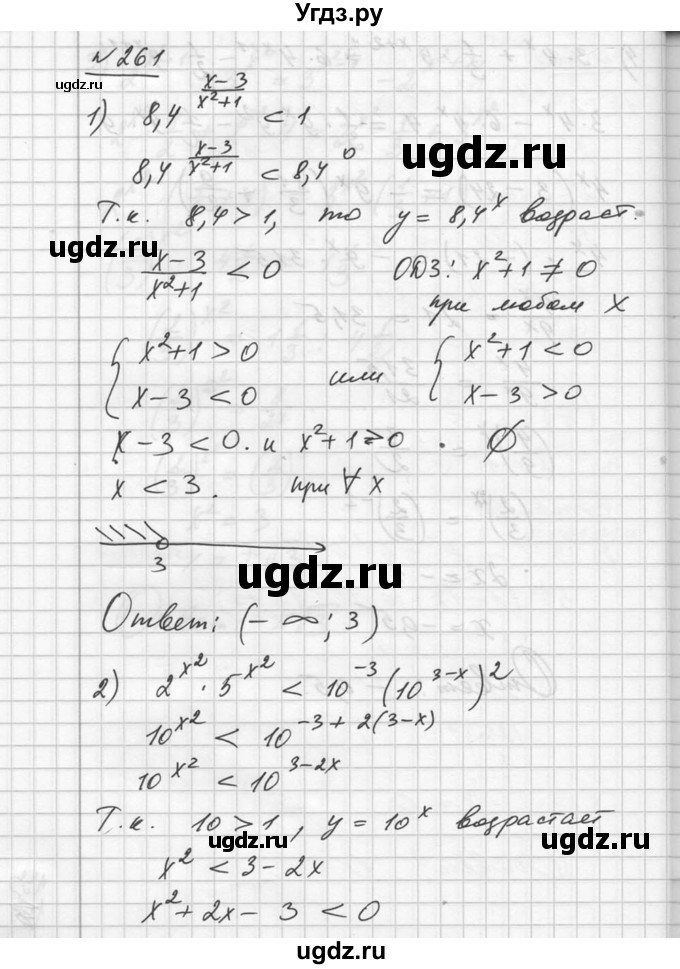 Угдз.ру
№ 261
ugdz.ru
1) 8,4^((x-3)/(x²+1)) < 1
ugdz.ru
8,4^((x-3)/(x²+1)) < 8,4⁰
Т.к. 8,4 > 1, то y = 8,4ˣ возраст.
ugdz.ru
(x-3)/(x²+1) < 0 ОДЗ: x²+1 ≠ 0
при любом x
{ x²+1 > 0 или { x²+1 < 0
x-3 < 0 x-3 > 0
x-3 < 0. и x²+1 > 0 . ∅
x < 3. при ∀ x
3
ugdz.ru
Ответ: (-∞; 3)
ugdz.ru
2) 2^(x²) · 5^(x²) < 10⁻³ (10^(3-x))²
10^(x²) < 10^(-3+2(3-x))
10^(x²) < 10^(3-2x)
Т.к. 10 > 1, y = 10ˣ возрастает
ugdz.ru
ugdz.ru
x² < 3-2x
x²+2x-3 < 0
ugdz.ru